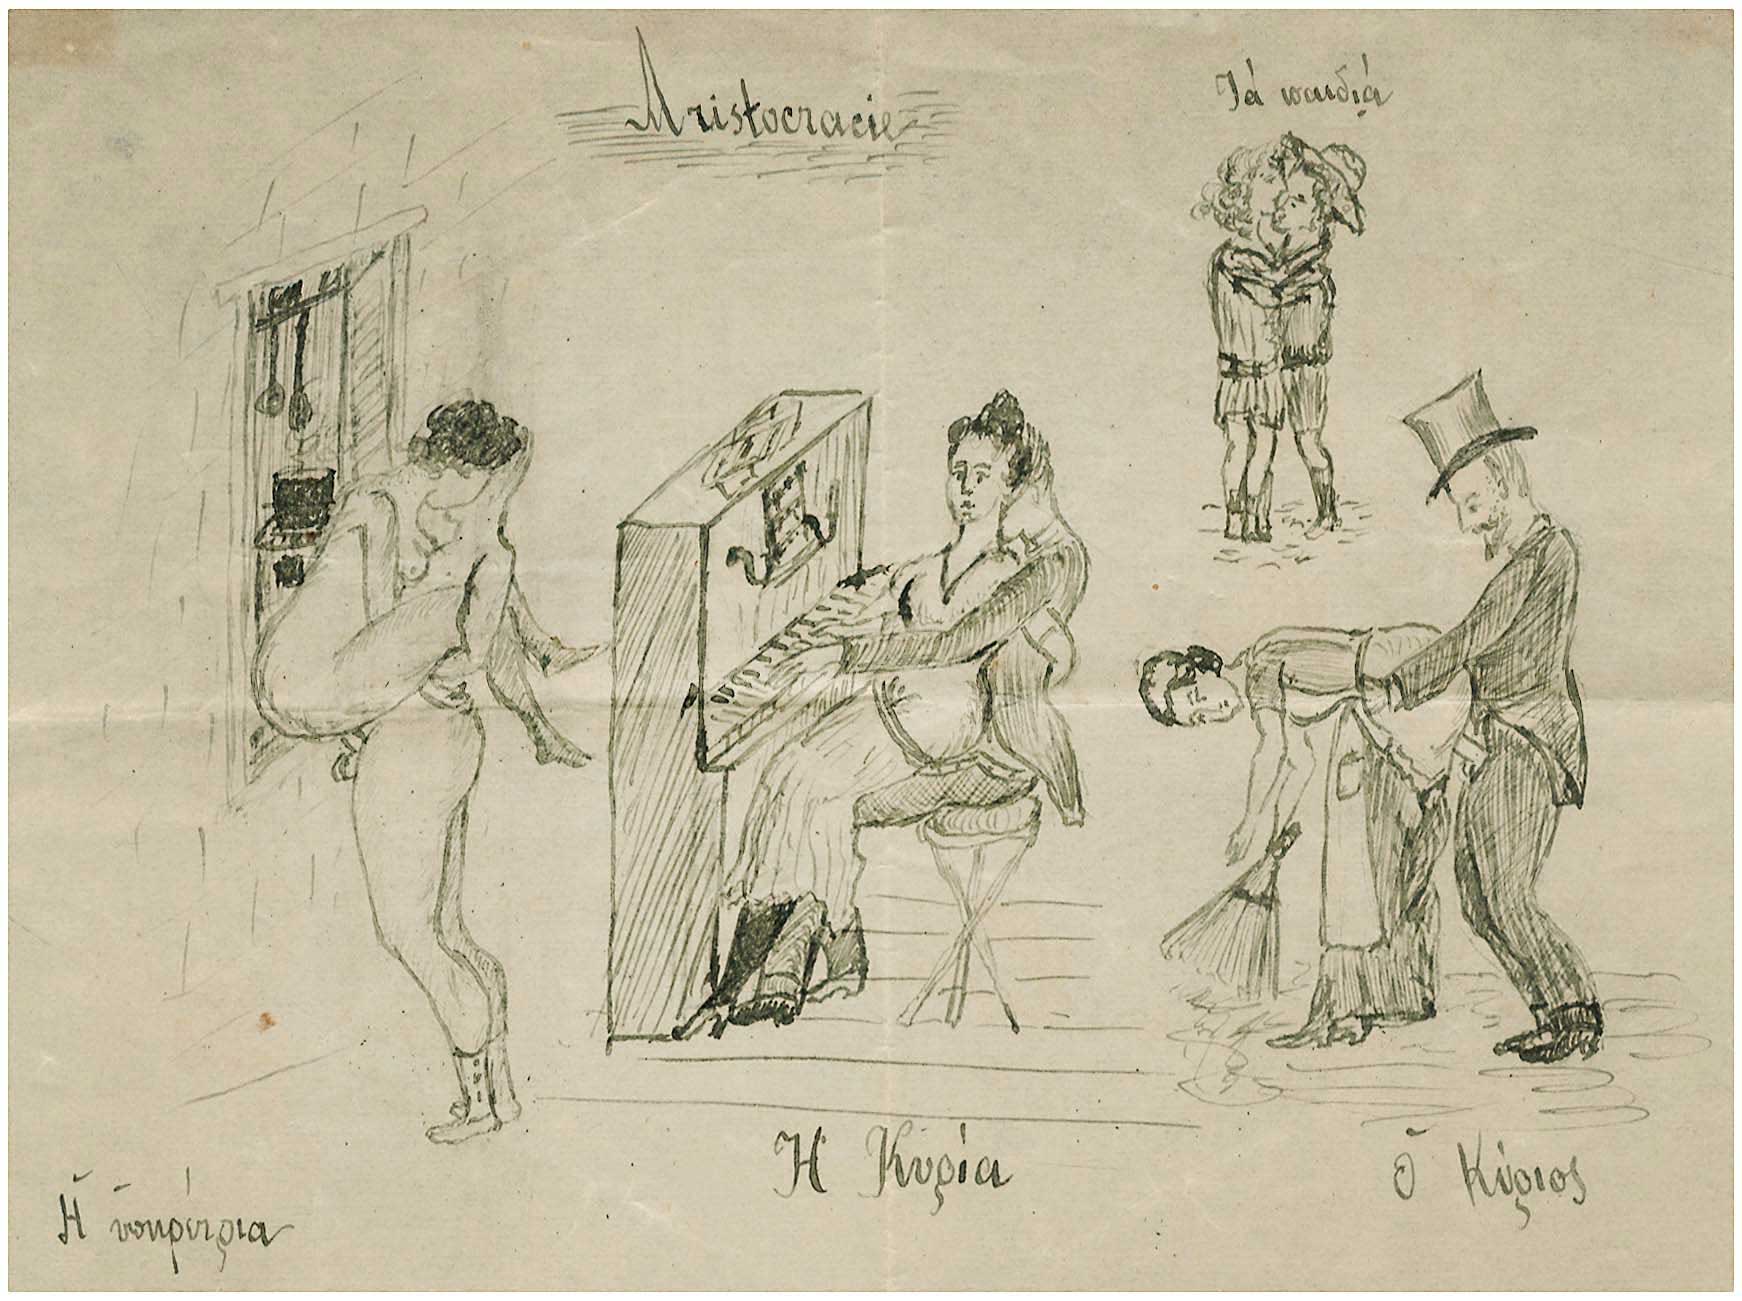 Aristocracie
Τά παιδιά
Ἡ Κυρία
Ὁ Κύριος
Ἡ ὑπηρέτρια